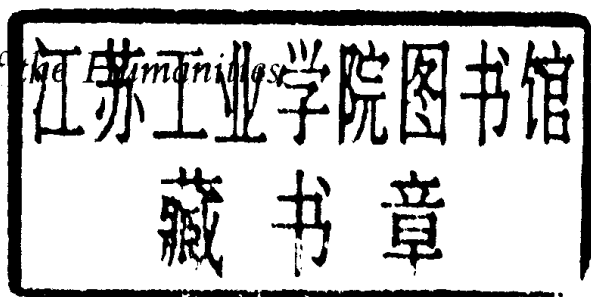 of the Humanities
江苏工业学院图书馆
藏书章